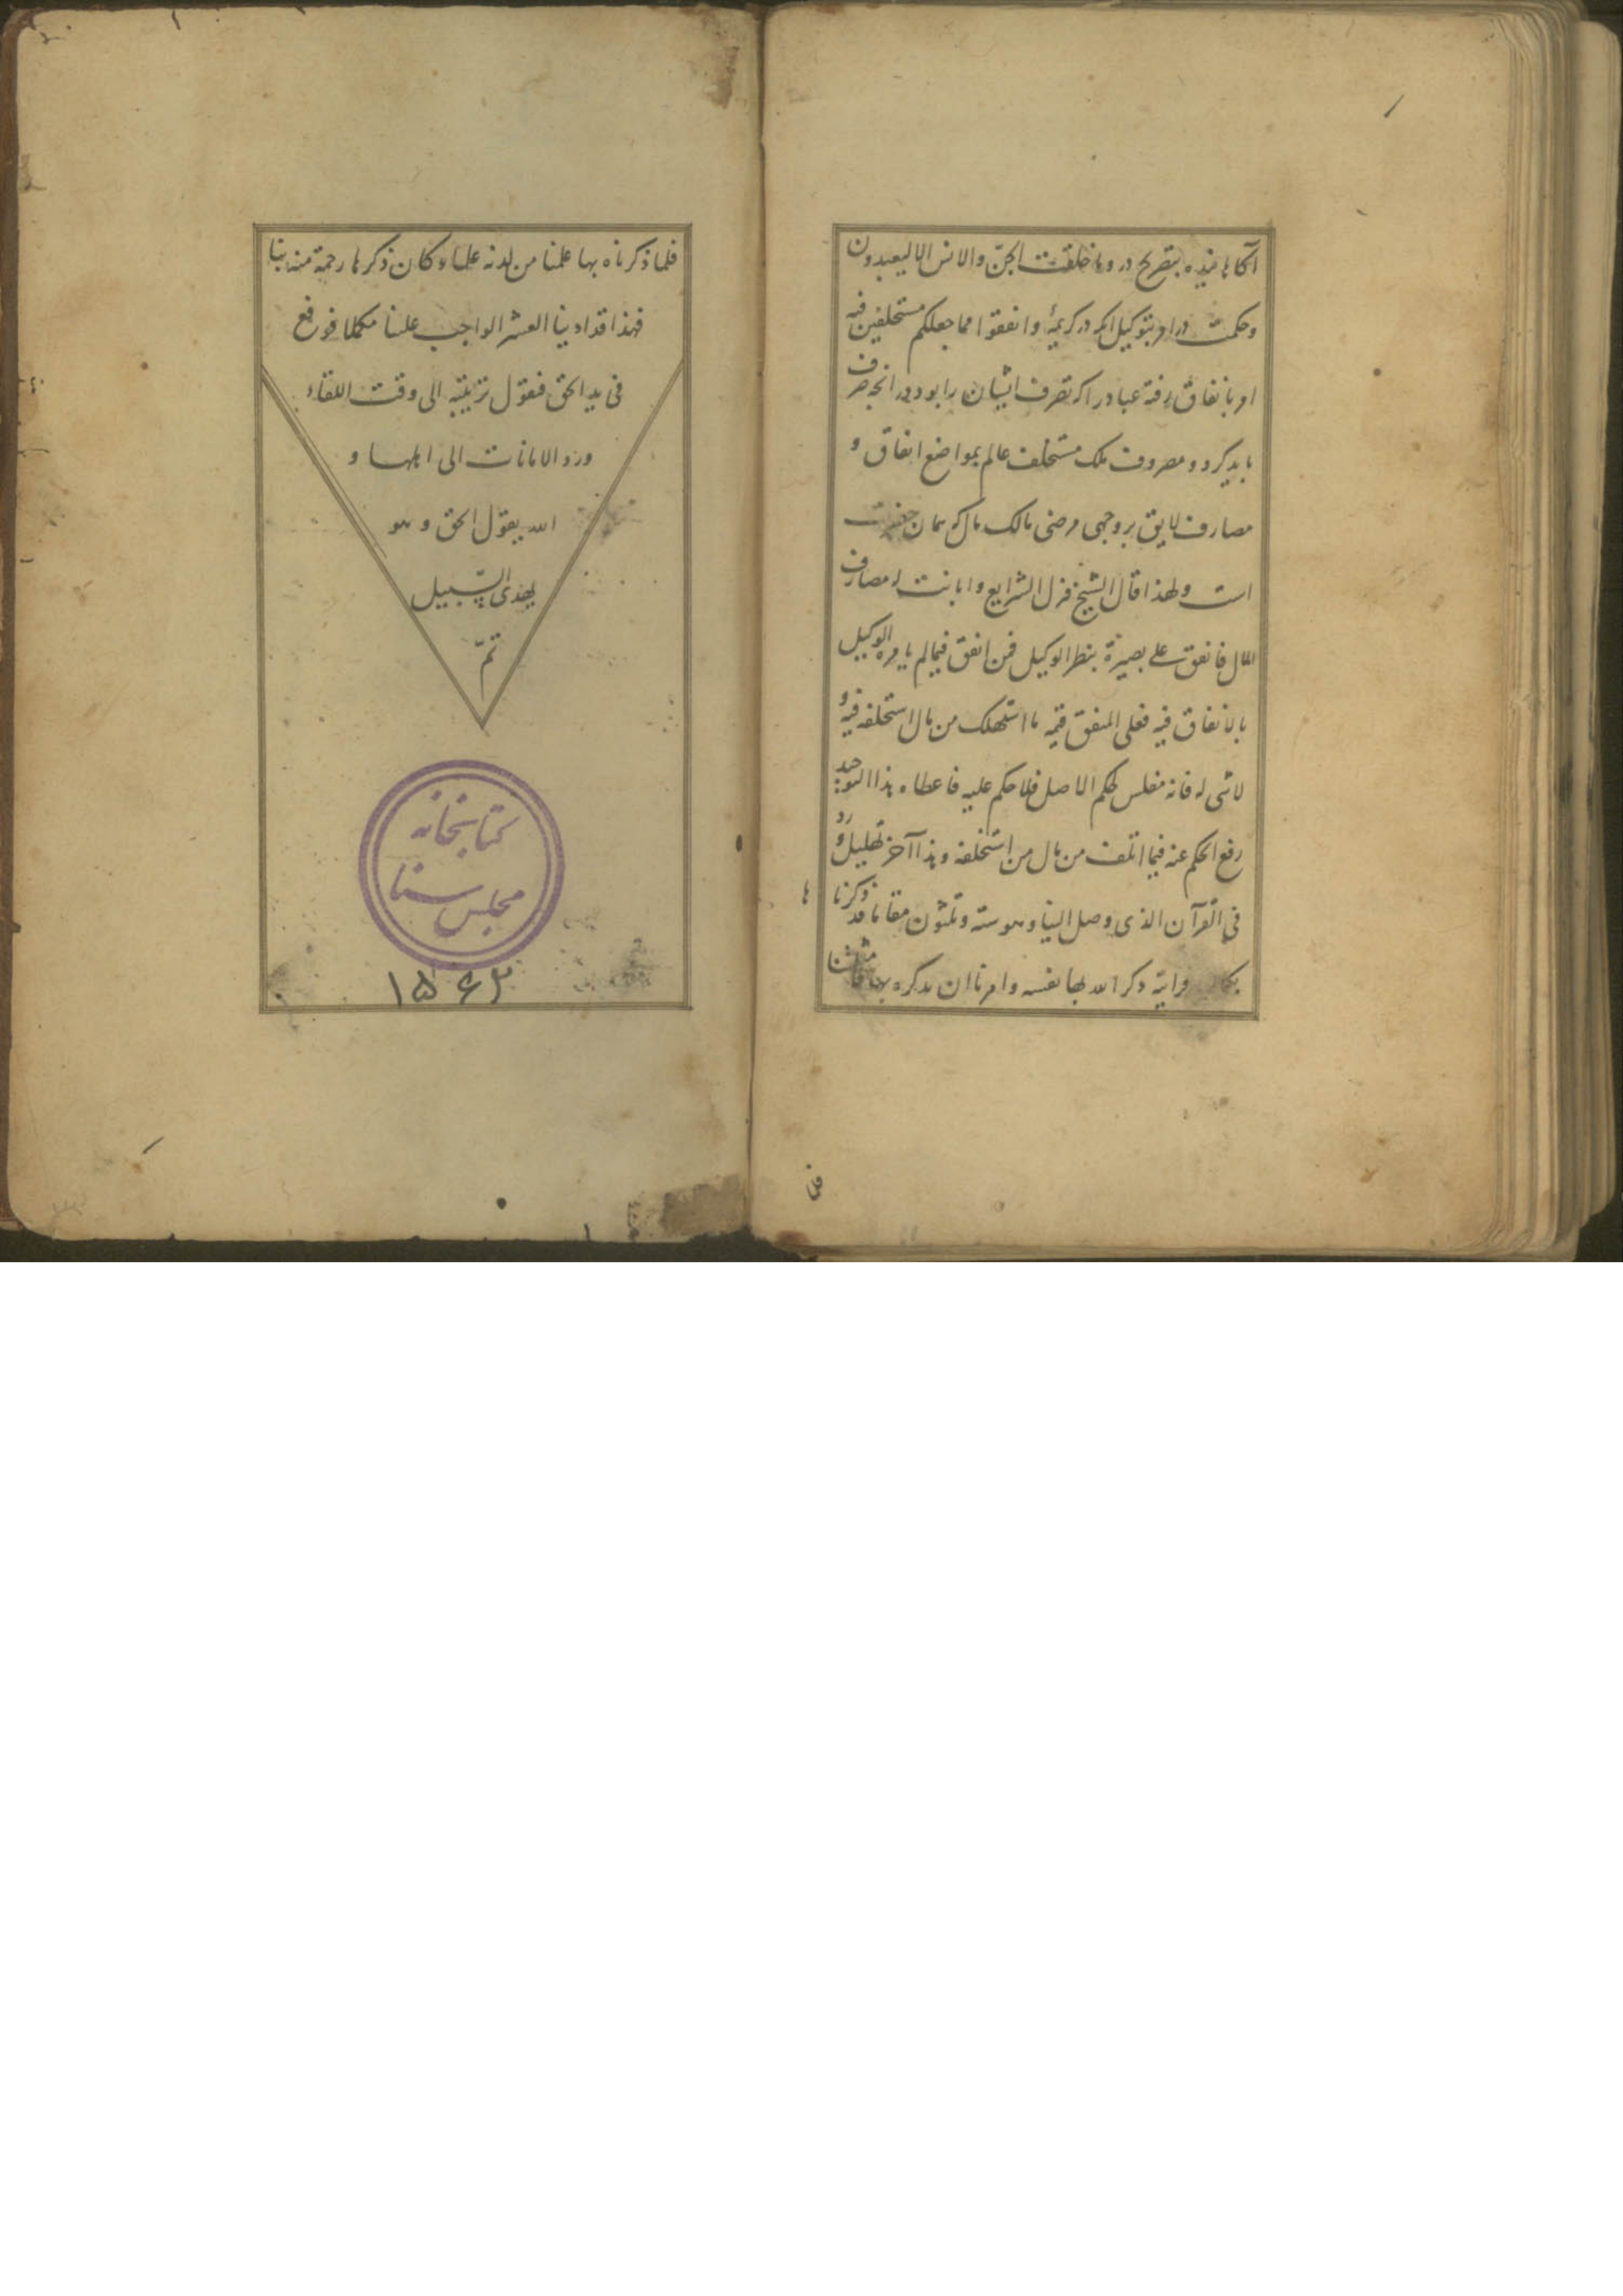 آگاهانیده بتصریح در وما خلقت الجنّ والانس الا لیعبدون
وحکمت در امر بتوکیل انکه در کریمهٔ وانفقوا مما جعلکم مستخلفین فیه
امر بانفاق رفته عباد را که تصرف ایشان را بود در انچه صرف
باید کرد و مصروف ملک مستخلف عالم بمواضع انفاق و
مصارف لایق بر وجهی مرضی مالک مال که همان حضرت
است ولهذا قال الشیخ فنزل الشرایع وابانت له مصارف
المال فانفق علی بصیرة بنظر الوکیل فمن انفق فیما لم یامره الوکیل
بالانفاق فیه فعلی المنفق قیمه ما استهلک من مال استخلفه فیه و
لاشی له فانه مفلس بحکم الاصل فلا حکم علیه فاعطاه هذا التوحید
رفع الحکم عنه فیما اتلف من مال من استخلفه وهذا آخر تهلیل ورد
فی القرآن الذی وصل الینا وهو ستة وثلثون مقاما قد ذکرناها
بکمالها قرآنیّة ذکر الله بها نفسه وامرنا ان نذکره بها فامتثلنا
فلما
فلما ذکرناه بها علمنا من لدنه علما وکان ذکرها رحمة منه بنا
فهذا قد ادینا العشر الواجب علینا مکملا فوقع
فی ید الحق فتقول تربیته الی وقت اللقاء
ورد الامانات الی اهلها و
الله یقول الحق و هو
یهدی السّبیل
تمّ
کتابخانه
مجلس سنا
۱۵۶۳